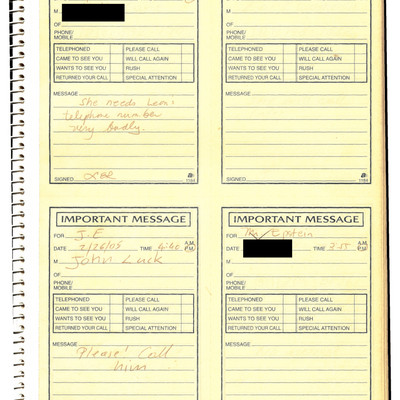 M
OF
PHONE/
MOBILE
TELEPHONED PLEASE CALL
CAME TO SEE YOU WILL CALL AGAIN
WANTS TO SEE YOU RUSH
RETURNED YOUR CALL SPECIAL ATTENTION
MESSAGE
She needs
telephone number
very badly.
SIGNED
1184
M
OF
PHONE/
MOBILE
TELEPHONED PLEASE CALL
CAME TO SEE YOU WILL CALL AGAIN
WANTS TO SEE YOU RUSH
RETURNED YOUR CALL SPECIAL ATTENTION
MESSAGE
SIGNED
1184
IMPORTANT MESSAGE
FOR J.E
DATE 2/26/05 TIME 4:40 A.M. P.M.
M John Luck
OF
PHONE/
MOBILE
TELEPHONED PLEASE CALL
CAME TO SEE YOU WILL CALL AGAIN
WANTS TO SEE YOU RUSH
RETURNED YOUR CALL SPECIAL ATTENTION
MESSAGE
Please! Call
him
IMPORTANT MESSAGE
FOR Epstein
DATE TIME 3:55 A.M. P.M.
M
OF
PHONE/
MOBILE
TELEPHONED PLEASE CALL
CAME TO SEE YOU WILL CALL AGAIN
WANTS TO SEE YOU RUSH
RETURNED YOUR CALL SPECIAL ATTENTION
MESSAGE